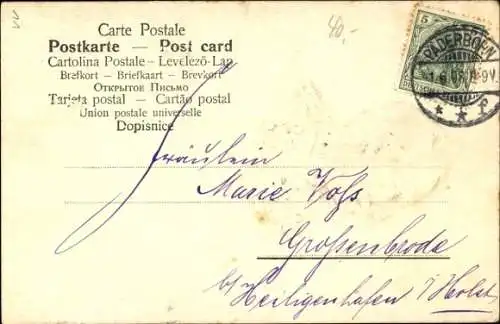 11
40,-
Carte Postale
Postkarte — Post card
Cartolina Postale – Levelező-Lap
Brefkort – Briefkaart – Brevkort
Открытое Письмо
Tarjeta postal – Cartão postal
Union postale universelle
Dopisnice
5
PADERBORN
Fräulein
Marie Voss
Großenbrode
b/ Heiligenhafen i/Holst